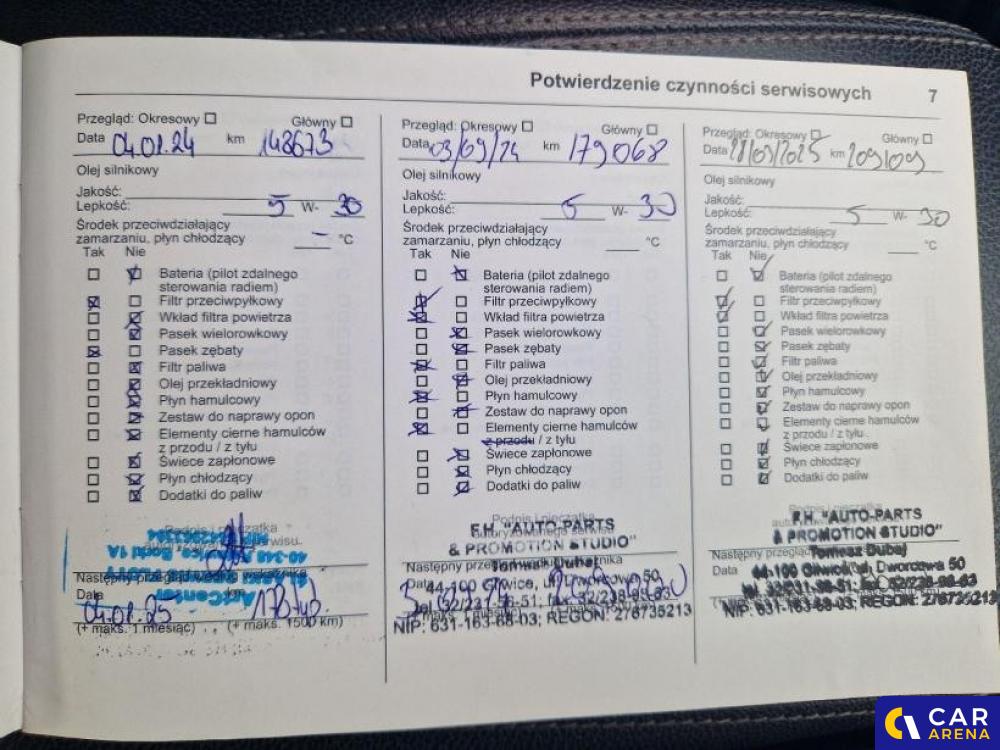 Potwierdzenie czynności serwisowych 7
Przegląd: Okresowy Główny
Data 04.01.24 km 148673
Olej silnikowy
Jakość:
Lepkość: 5 W- 30
Środek przeciwdziałający
zamarzaniu, płyn chłodzący - °C
Tak Nie
Bateria (pilot zdalnego
sterowania radiem)
Filtr przeciwpyłkowy
Wkład filtra powietrza
Pasek wielorowkowy
Pasek zębaty
Filtr paliwa
Olej przekładniowy
Płyn hamulcowy
Zestaw do naprawy opon
Elementy cierne hamulców
z przodu / z tyłu
Świece zapłonowe
Płyn chłodzący
Dodatki do paliw
Podpis i pieczątka
Następny przegląd według wskaźnika
Data
04.01.25
(+ maks. 1 miesiąc) (+ maks. 1500 km)
Przegląd: Okresowy Główny
Data 03/09/24 km 179068
Olej silnikowy
Jakość:
Lepkość: 5 W- 30
Środek przeciwdziałający
zamarzaniu, płyn chłodzący °C
Tak Nie
Bateria (pilot zdalnego
sterowania radiem)
Filtr przeciwpyłkowy
Wkład filtra powietrza
Pasek wielorowkowy
Pasek zębaty
Filtr paliwa
Olej przekładniowy
Płyn hamulcowy
Zestaw do naprawy opon
Elementy cierne hamulców
z przodu / z tyłu
Świece zapłonowe
Płyn chłodzący
Dodatki do paliw
Podpis i pieczątka
autoryzowanego serwisu
F.H. "AUTO-PARTS
& PROMOTION STUDIO"
Następny
Tomasz Dubaj
Data
44-100 Gliwice, ul. Dworcowa 50
NIP: 631-163-68-03; REGON: 276735213
Przegląd: Okresowy Główny
Data 28/03/2025 km 209109
Olej silnikowy
Jakość:
Lepkość: 5 W- 30
Środek przeciwdziałający
zamarzaniu, płyn chłodzący °C
Tak Nie
Bateria (pilot zdalnego
sterowania radiem)
Filtr przeciwpyłkowy
Wkład filtra powietrza
Pasek wielorowkowy
Pasek zębaty
Filtr paliwa
Olej przekładniowy
Płyn hamulcowy
Zestaw do naprawy opon
Elementy cierne hamulców
z przodu / z tyłu
Świece zapłonowe
Płyn chłodzący
Dodatki do paliw
F.H. "AUTO-PARTS
& PROMOTION STUDIO"
Następny przegląd
Tomasz Dubaj
Data
44-100 Gliwice, ul. Dworcowa 50
NIP: 631-163-68-03; REGON: 276735213
CAR
ARENA